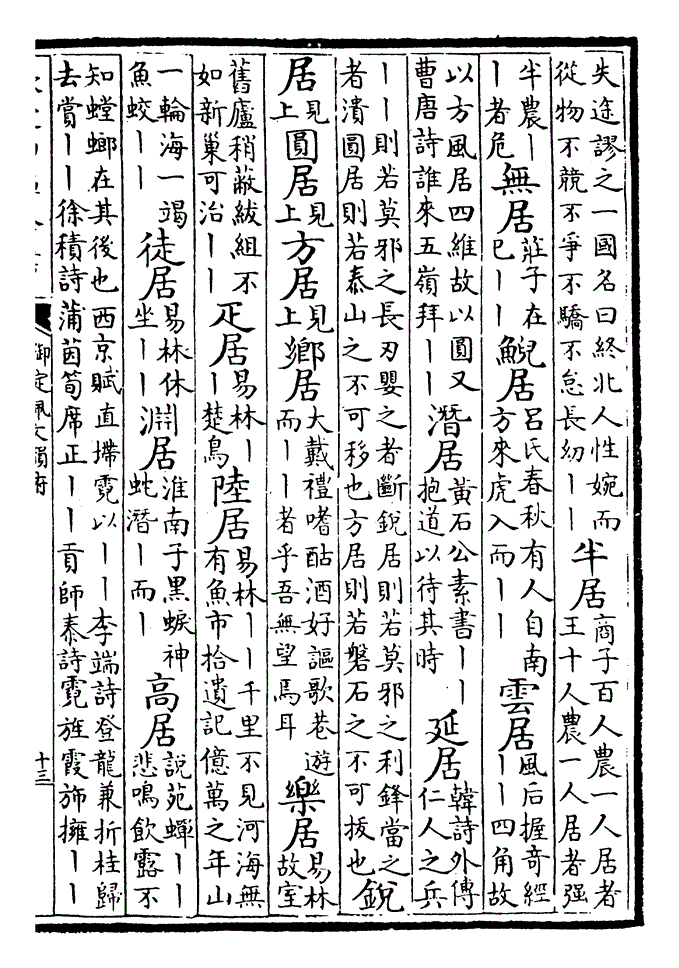 失途謬之一國名曰終北人性婉而從物不競不爭不驕不忌長幼丨丨 半居 商子百人農一人居者王十人農一人居者强
半農丨丨者危 無居 莊子在巳丨丨 鯢居 呂氏春秋有人自南方來虎入而丨丨 雲居 風后握奇經丨丨四角故
以方風居四維故以圓又曹唐詩誰來五嶺拜丨丨 潛居 黃石公素書丨丨抱道以待其時 延居 韓詩外傳仁人之兵
丨丨則若莫邪之長刃嬰之者斷銳居則若莫邪之利鋒當之者潰圓居則若泰山之不可移也方居則若磐石之不可拔也 銳
居 見上 圓居 見上 方居 見上 鄉居 大戴禮嗜酤酒好謳歌巷遊而丨丨者乎吾無望焉耳 樂居 易林故室
舊廬稍蔽紱組不如新巢可治丨丨 疋居 易林丨丨楚鳥 陸居 易林丨丨千里不見河海無有魚市拾遺記億萬之年山
一輪海一竭魚蛟丨丨 徒居 易林休坐丨丨 淵居 淮南子黑蜧神虵潛丨而丨 高居 說苑蟬丨丨悲鳴飲露不
知螳螂在其後也西京賦直墆霓以丨丨李端詩登龍兼折桂歸去賞丨丨徐積詩蒲茵筍席正丨丨貢師泰詩霓旌霞斾擁丨丨
御定佩文韻府
十三